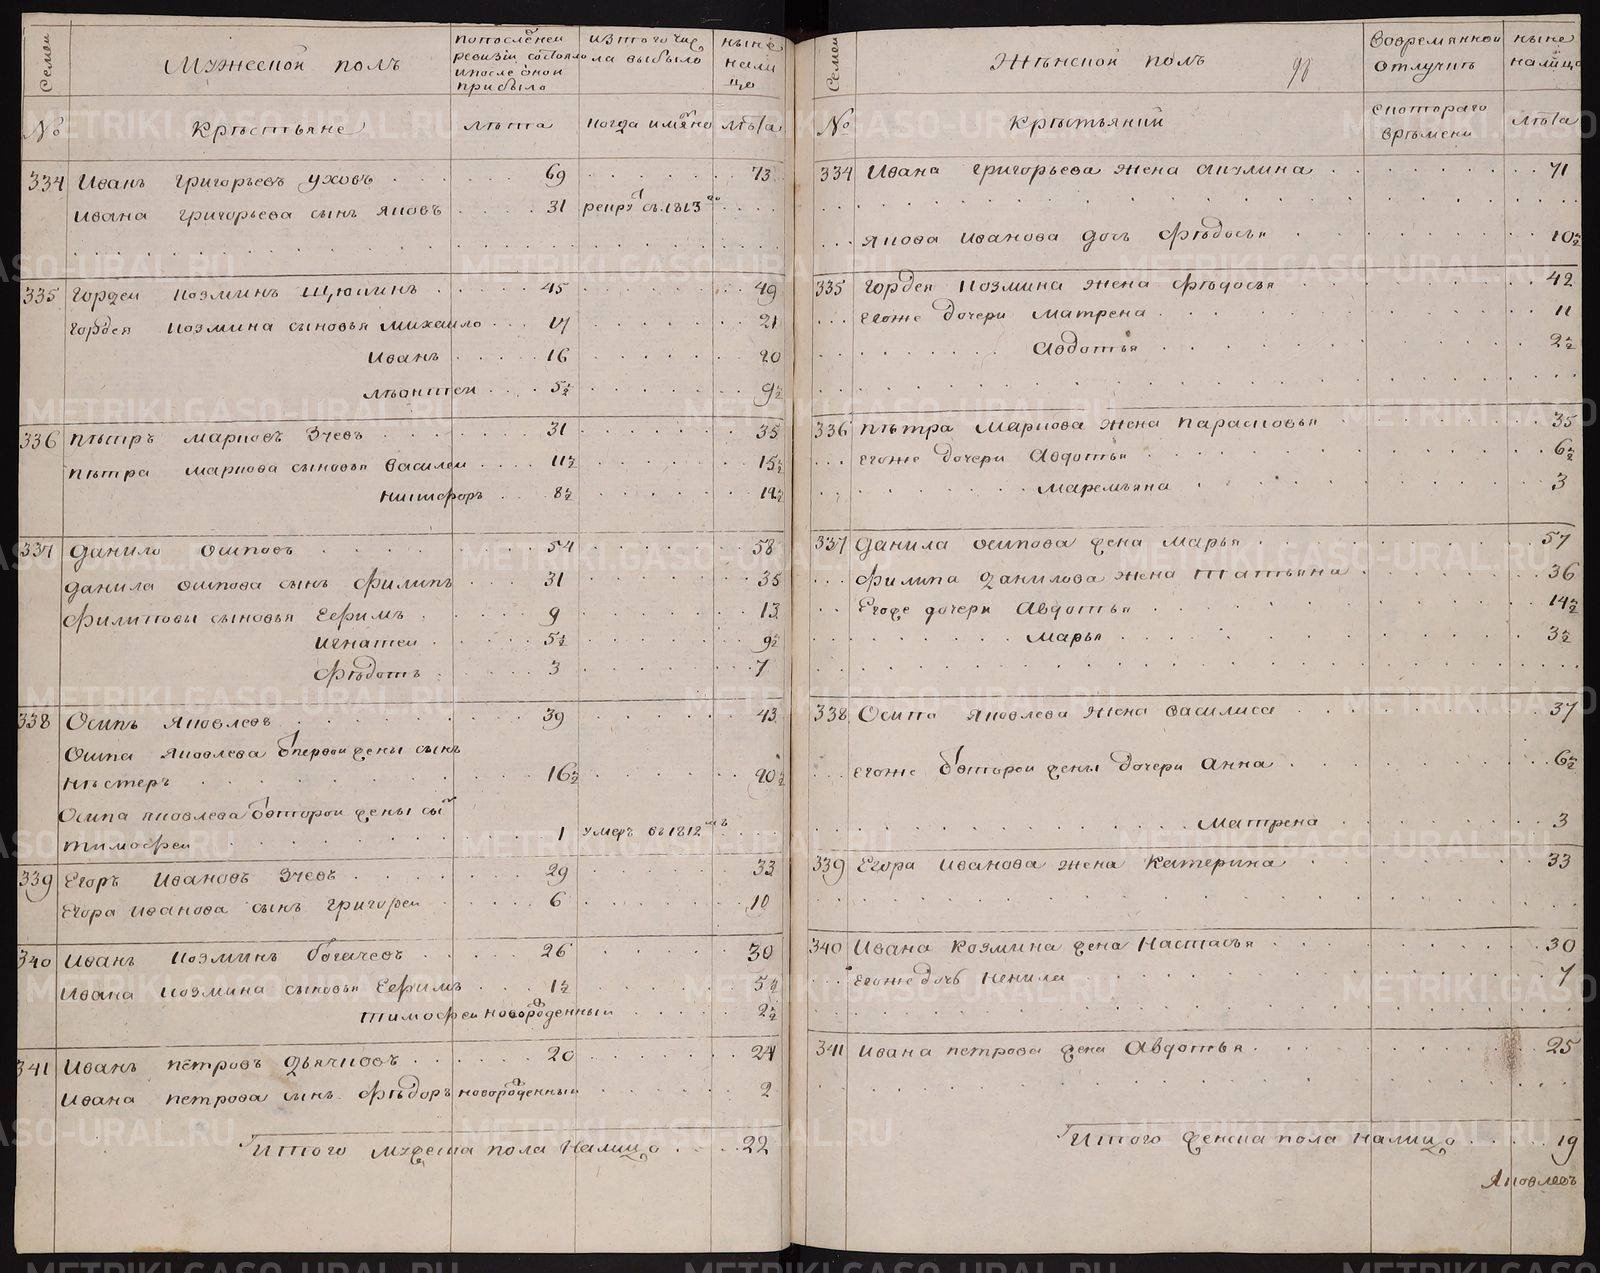 Семеи
Мужеской полъ
попоследнеи ревизiи состояло и после оной прибыло
изтого числа выбыло
ныне налицо
№
Крестьяне
лета
когда имяно
лета
334 Иванъ Григорьевъ Уховъ 69 73
Ивана Григорьева сынъ Яковъ 31 рекрутъ съ 1813го
335 Гордеи Козминъ Щюкинъ 45 49
Гордея Козмина сыновья Михаило 17 21
Иванъ 16 20
Леонтеи 5½ 9½
336 Петръ Марковъ Зуевъ 31 35
Петра Маркова сыновья Василеи 11½ 15½
Никифоръ 8½ 12½
337 Данило Осиповъ 54 58
Данила Осипова сынъ Филипъ 31 35
Филиповы сыновья Ефимъ 9 13
Игнатеи 5½ 9½
Федотъ 3 7
338 Осипъ Яковлевъ 39 43
Осипа Яковлева от первои жены сынъ
Нестеръ 16½ 20½
Осипа Яковлева от второи жены сынъ
Тимофеи 1 умеръ въ 1812мъ
339 Егоръ Ивановъ Зуевъ 29 33
Егора Иванова сынъ Григореи 6 10
340 Иванъ Козминъ Богачевъ 26 30
Ивана Козмина сыновья Ефимъ 1½ 5½
Тимофеи новорожденныи 2½
341 Иванъ Петровъ Дьячковъ 20 24
Ивана Петрова сынъ Федоръ новорожденныи 2
Итого мужеска пола налицо 22
Семеи
Женской полъ
вовременной отлучке
ныне налицо
№
Крестьянки
скотораго времени
лета
334 Ивана Григорьева жена Акулина 71
Якова Иванова дочь Федосья 10½
335 Гордея Козмина жена Федосья 42
егоже дочери Матрена 11
Авдотья 2½
336 Петра Маркова жена Парасковья 35
егоже дочери Авдотья 6½
Маремьяна 3
337 Данила Осипова жена Марья 57
Филипа Данилова жена Татьяна 36
Егоже дочери Авдотья 14½
Марья 3½
338 Осипа Яковлева жена Василиса 37
егоже от второи жены дочери Анна 6½
Матрена 3
339 Егора Иванова жена Катерина 33
340 Ивана Козмина жена Настасья 30
егоже дочь Ненила 7
341 Ивана Петрова жена Авдотья 25
Итого женска пола налицо 19
Яковлевъ
METRIKI.GASO-URAL.RU